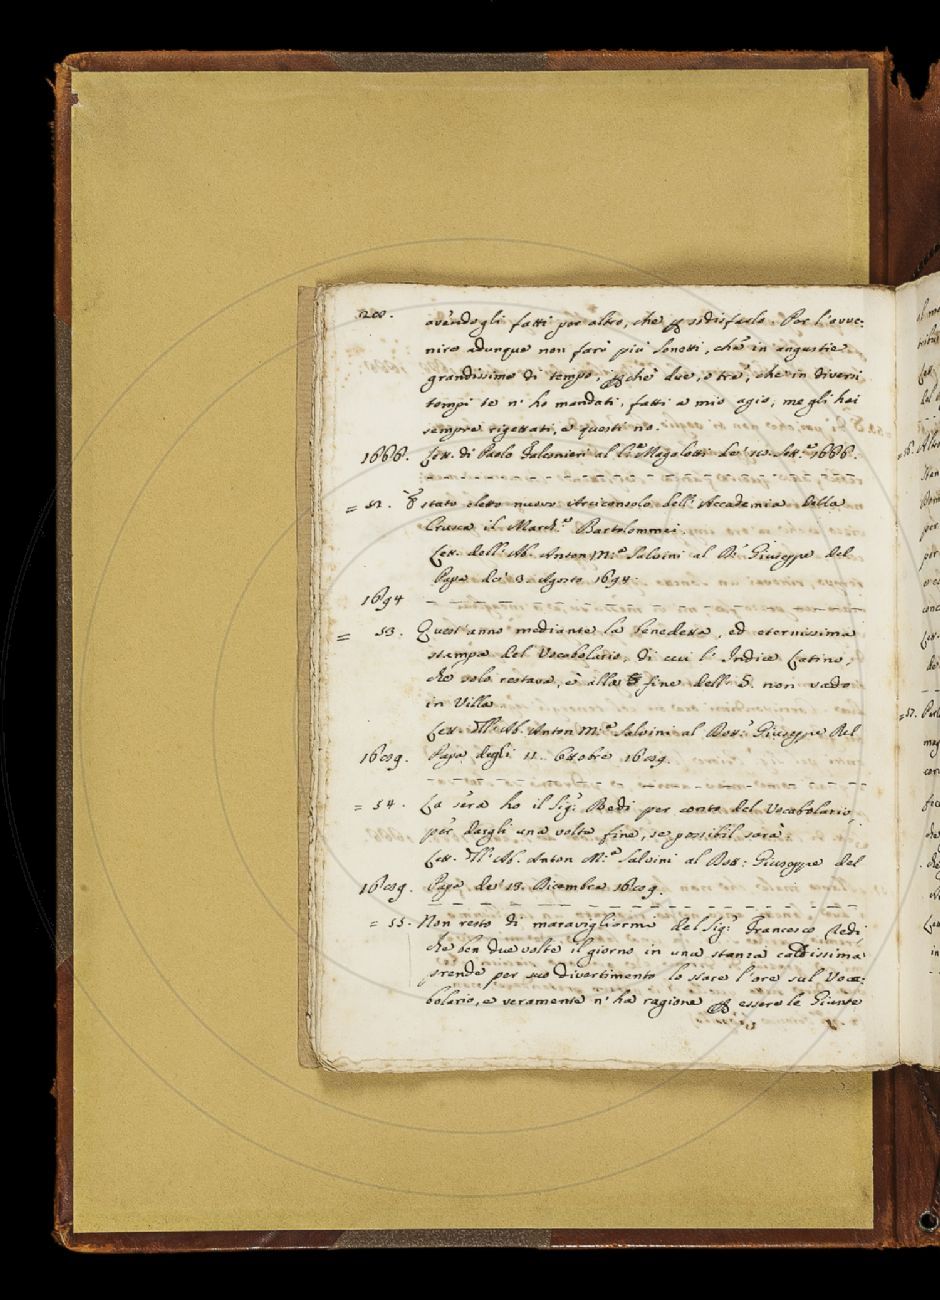 avendogli fatti per altro, che sodisfarlo. Per l'avve-
nire adunque non farò più Sonetti, che in angustie
grandissime di tempo, perchè due, o tre, che in diversi
tempi te n' ho mandati, fatti a mio agio, me gli hai
sempre rigettati, e questi no.
1666. Lett. di Paolo Falconieri al Magalotti de' Sett.e 1666.
= 52. È stato eletto nuovo Arciconsolo dell' Accademia della
Crusca il March.e Bartolommei.
Lett. dell' Ab. Anton M.a Salvini al D.r Giuseppe del
Papa de' 3. Agosto 1694.
1694
= 53. Quest' anno mediante la benedetta, ed eternissima
stampa del Vocabolario, di cui l' Indice Latino,
che solo restava, è alla fine dell' S. non vado
in Villa
Lett. dell' Ab. Anton M.a Salvini al Dott. Giuseppe del
Papa degli 11. Ottobre
= 54. La sera ho il Sig.r Redi per conto del Vocabolario,
per dargli una volta fine, se possibil sarà.
Lett. dell' Ab. Anton M.a Salvini al Dott. Giuseppe del
Papa de' 18. Dicembre
= 55. Non resto di maravigliarmi del Sig.r Francesco Redi,
che ben due volte il giorno in una stanza caldissima
prende per suo divertimento lo stare l'ore sul Voca-
bolario, e veramente n' ha ragione per essere le Giunte